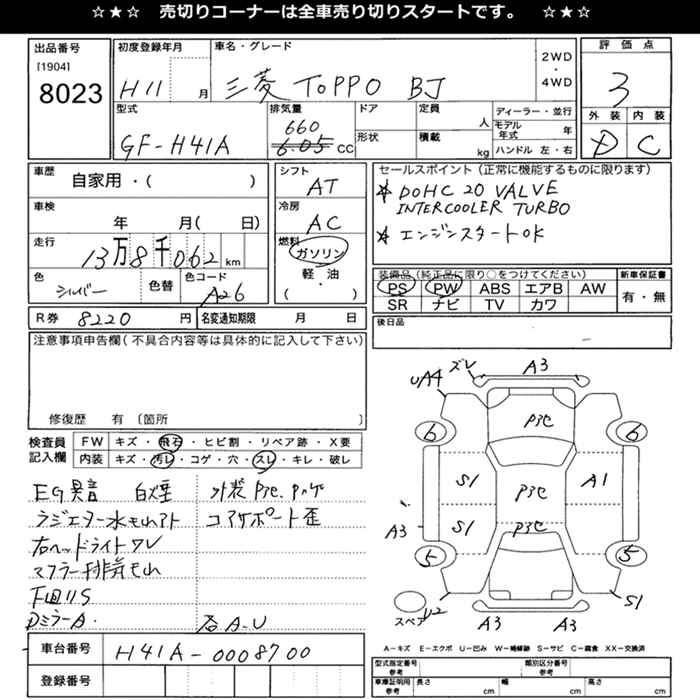 ☆ ★ ☆ 売切りコーナーは全車売り切りスタートです。 ☆ ★ ☆
出品番号
[1904]
8023
初度登録年月
H11 月
車名・グレード
三菱 TOPPO BJ
2WD
・
4WD
評価点
3
外装 内装
D C
型式
GF-H41A
排気量
660
6.05 CC
ドア
形状
定員
人
積載
kg
ディーラー・並行
モデル年式 年
ハンドル 左・右
車歴
自家用・( )
車検
年 月( 日)
走行
13万8千062 km
色
シルバー
色替
色コード
A26
シフト
AT
冷房
AC
燃料
ガソリン
軽・油
( )
セールスポイント(正常に機能するものに限ります)
☆ DOHC 20 VALVE
INTERCOOLER TURBO
☆ エンジンスタートOK
装備品(純正品に限り○をつけてください)
PS PW ABS エアB AW
SR ナビ TV カワ
新車保証書
有・無
R券 8220 円
名変通知期限 月 日
後日品
注意事項申告欄(不具合内容等は具体的に記入して下さい)
修復歴 有 〔箇所
検査員
記入欄
FW キズ・飛石・ヒビ割・リペア跡・X要
内装 キズ・汚レ・コゲ・穴・スレ・キレ・破レ
EG異音 白煙
ラジエター水もれアト
右ヘッドライトワレ
マフラー排気もれ
下回りS
Dミラー A.
外装 P3C, Pハゲ
コアサポート歪
A-U
車台番号
H41A-0008700
登録番号
UA4
ズレ
A3
P3C
6
6
S1
P3C
A1
S1
P3C
A3
5
5
スペア
U2
A3
A3
S1
A−キズ E−エクボ U−凹み W−補修跡 S−サビ C−腐食 XX−交換済
型式指定番号
参考
類別区分番号
参考
車庫証明用
参考
長さ cm
幅 cm
高さ cm